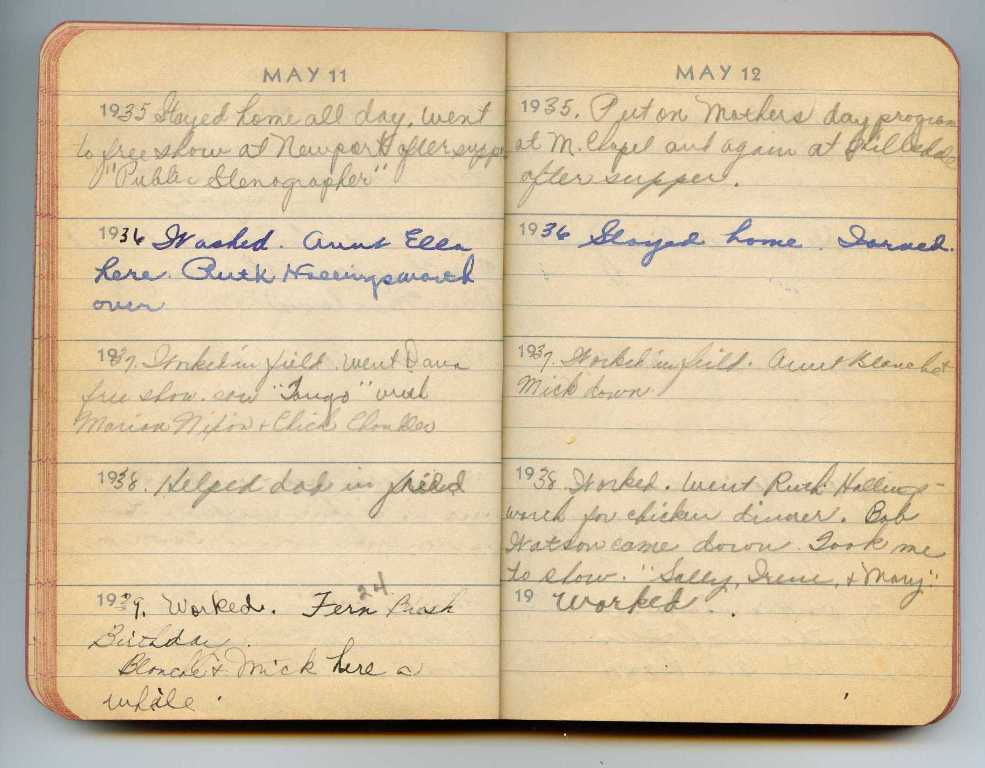 MAY 11
1935 Stayed home all day, went
to free show at Newport after supper
"Public Stenographer"
1936 Washed. Aunt Ella
here. Ruth Hollingsworth
over
1937. Worked in field. Went Dana
free show. saw "Tango" with
Marian Nixon + Chick Chandler
1938. Helped dad in field
24
1939. Worked. Fern Brush
Birthday.
Blanche + Mick here a
while.
MAY 12
1935. Put on Mothers day program
at M. Chapel and again at Hillsdale
after supper.
1936 Stayed home. Ironed.
1937. Worked in field. Aunt Blanche +
Mick down
1938. Worked. Went Ruth Hollings-
worth for chicken dinner. Bob
Watson came down. Took me
to show. "Sally, Irene, + Mary"
19 Worked.